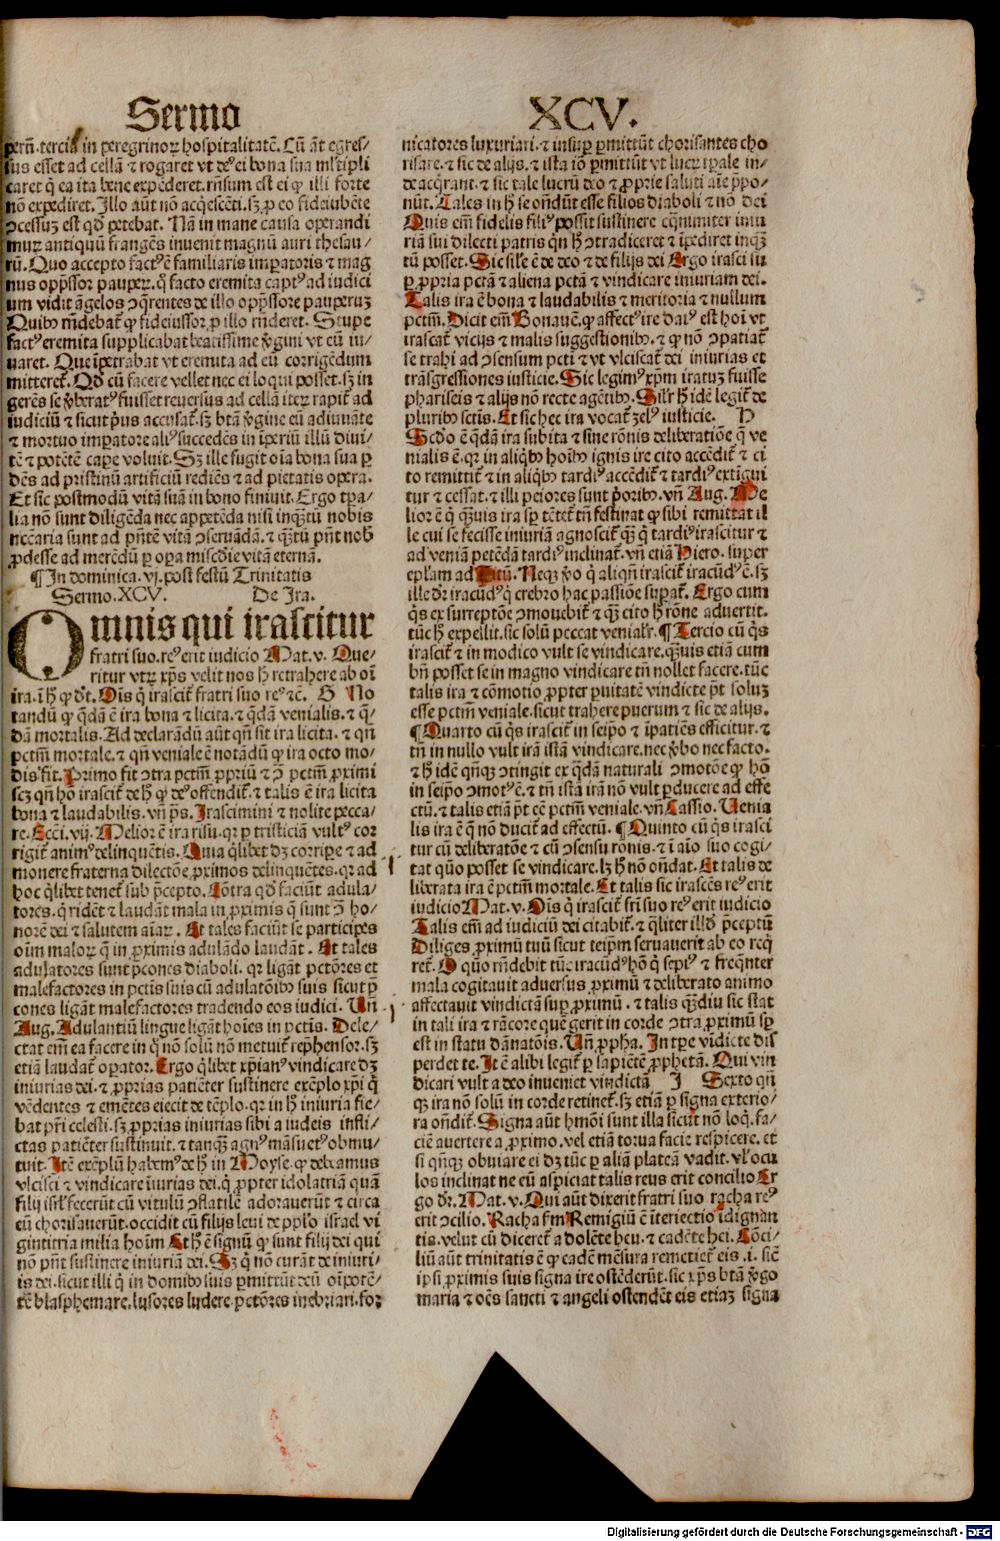 Sermo XCV.
perũ. terciã in peregrinoꝝ hospitalitatẽ. Cũ aũt egres⸗
sus esset ad cellã ⁊ rogaret vt deꝰ ei bona sua mĺtipli
caret q̃ ea ita bene expẽderet. rñsum est ei ꝙ illi forte
nõ expediret. Illo aũt nõ acqͥescẽti. sꝫ ꝓ eo fideiubẽte
ꝯcessuꝫ est qd̓ petebat. Nã in mane causa operandi
muꝝ antiquũ frangẽs inuenit magnũ auri thesau⸗
rũ. Quo accepto factꝰ ẽ familiaris imꝑatoris ⁊ mag
nus opp̃ssor pauperꝝ. q̃ facto eremita captꝰ ad iudici
um vidit ãgelos ꝯq̃rentes de illo opp̃ssore pauperuꝫ
Quibꝰ rñdebat̃ ꝙ fideiussor ꝓ illo rñderet. Stupe
factꝰ eremita supplicabat beatissime v̓gini vt eũ iu⸗
uaret. Que ĩpetrabat vt eremita ad eũ corrigẽdum
mitteret̃. Qd̓ cũ facere vellet nec ei loqui posset. sꝫ in
gerẽs se v̓beratꝰ fuisset reuersus ad cellã iteꝝ rapit̃ ad
iudiciũ ⁊ sicut pͥus accusat̃. sꝫ btã v̓gine eũ adiuuãte
⁊ mortuo imꝑatore aliꝰ succedẽs in ĩperiũ illũ diui⸗
tẽ ⁊ potẽtẽ caꝑe voluit. Sꝫ ille fugit oĩa bona sua ꝑ
dẽs ad pristinũ artificiũ rediẽs ⁊ ad pietatis opera.
Et sic postmodũ vitã suã in bono finiuit. Ergo tꝑa⸗
lia nõ sunt diligẽda nec appetẽda nisi inqꝫtũ nobis
nccãria sunt ad pñtẽ vitã ꝯseruãdã. ⁊ qꝫtũ pñt nob̃
ꝓdesse ad merẽdũ ꝑ oꝑa misc̃die vitã eternã.
¶ In dominica. vj. post festũ Trinitatis
Sermo. XCV. De Ira.
Omnis qui irascitur
fratri suo. reꝰ erit iudicio Mat. v. Que⸗
ritur vtꝝ xp̃s velit nos h̃ retrahere ab oĩ
ira. ĩ h̃ ꝙ dt̃. Oĩs q̃ irascit̃ fratri suo reꝰ ⁊c̃. G No
tandũ ꝙ q̃dã ẽ ira bona ⁊ licita. ⁊ q̃dã venialis. ⁊ q̃⸗
dã mortalis. Ad declarãdũ aũt qñ sit ira licita. ⁊ qñ
pctm̃ mortale. ⁊ qñ veniale ẽ notãdũ ꝙ ira octo mo⸗
dis fit. Primo fit ꝯtra pctm̃ ꝓpriũ ⁊ ꝯ̃ pctm̃ ꝓximi
scꝫ qñ hõ irascit̃ de h̃ ꝙ deꝰ offendit̃. ⁊ talis ẽ ira licita
bona ⁊ laudabilis. vñ ps̃. Irascimini ⁊ nolite pecca⸗
re. Ecc̃i. vij. Melior ẽ ira risu. qꝛ ꝑ tristiciã vultꝰ cor
rigit̃ animꝰ delinquẽtis. Quia q̃libet dꝫ corripe ⁊ ad
monere fraterna dilectõe ꝓximos delinquẽtes. qꝛ ad
hoc q̃libet tenet̃ sub p̃cepto. Cõtra qd̓ faciũt adula⸗
tores. q̃ ridẽt ⁊ laudãt mala in ꝓximis q̃ sunt ꝯ̃ ho⸗
norẽ dei ⁊ salutem aĩaꝝ. Et tales faciũt se participes
oĩm maloꝝ q̃ in ꝓximis adulãdo laudãt. Et tales
adulatores sunt p̃cones diaboli. qꝛ ligãt pctõres et
malefactores in pctĩs suis cũ adulatõibꝰ suis sicut p̃
cones ligãt malefactores tradendo eos iudici. Vñ
Aug. Adulantiũ lingue ligãt hoĩes in pctĩs. Dele⸗
ctat em̃ ea facere in q̃ nõ solũ nõ metuit̃ rep̃hensor. sꝫ
etiã laudat̃ oꝑator. Ergo q̃libet xp̃ianꝰ vindicare dꝫ
iniurias dei. ⁊ ꝓprias patiẽter sustinere exẽplo xp̃i q̃
vẽdentes ⁊ emẽtes eiecit de tẽplo. qꝛ in h̃ iniuria fie⸗
bat pr̃i celesti. sꝫ ꝓprias iniurias sibi a iudeis infli⸗
ctas patiẽter sustinuit. ⁊ tanqꝫ agnꝰ mãsuetꝰ obmu⸗
tuit. Itẽ exẽplũ habemꝰ de h̃ in Moyse. ꝙ debamus
vlcisci ⁊ vindicare iĩurias dei. q̃ ꝓpter idolatriã quã
filij isrl̃ fecerũt cũ vitulũ ꝯflatilẽ adorauerũt ⁊ circa
eũ chorisauerũt. occidit cũ filijs leui de ppl̃o israel vi
gintitria milia hoĩm Et h̃ ẽ signũ ꝙ sunt filij dei qui
nõ pñt sustinere iniuriã dei. Sꝫ q̃ nõ curãt de iniuri⸗
is dei. sicut illi q̃ in domibꝰ suis ꝑmittũt deũ oĩpotẽ⸗
tẽ blasphemare. lusores ludere. pctõres inebriari. for
nicatores luxuriari. ⁊ insuꝑ ꝑmittũt chorisantes cho
risare. ⁊ sic de alijs. ⁊ ista iõ ꝑmittũt vt lucꝝ tꝑale in⸗
de acq̃rant. ⁊ sic tale lucrũ deo ⁊ ꝓprie saluti aĩe p̃po⸗
nũt. Tales in h̃ se oñdũt esse filios diaboli ⁊ nõ dei
Quis em̃ fidelis filiꝰ possit sustinere eq̃nimiter iniu
riã sui dilecti patris qñ h̃ ꝯtradiceret ⁊ ĩpediret inqꝫ
tũ posset. Sic sil̃e ẽ de deo ⁊ de filijs dei Ergo irasci su
ꝑ ꝓpria pctã ⁊ aliena pctã ⁊ vindicare iniuriam dei.
Talis ira ẽ bona ⁊ laudabilis ⁊ meritoria ⁊ nullum
pctm̃. Dicit em̃ Bonauẽ. ꝙ affectꝰ ire datꝰ est hoĩ vt
irascat̃ vicijs ⁊ malis suggestionibꝰ. ⁊ ꝙ nõ ꝯpatiat̃
se trahi ad ꝯsensum pcti ⁊ vt vlciscat̃ dei iniurias et
trãsgressiones iusticie. Sic legimꝰ xp̃m iratuꝫ fuisse
phariseis ⁊ alijs nõ recte agẽtibꝰ. Sil̃r h̃ idẽ legit̃ de
pluribꝰ sctĩs. Et sic hec ira vocat̃ zelꝰ iusticie. H
Scd̓o ẽ q̃dã ira subita ⁊ sine rõnis deliberatiõe q̃ ve
nialis ẽ. qꝛ in aliqͥbꝰ hoĩbꝰ ignis ire cito accẽdit̃ ⁊ ci
to remittit̃ ⁊ in aliqͥbꝰ tardiꝰ accẽdit̃ ⁊ tardiꝰ extĩgui
tur ⁊ cessat. ⁊ illi peiores sunt pͥoribꝰ. vñ Aug. Me
lior ẽ q̃ qꝫuis ira sꝑ tẽtet̃ tñ festinat ꝙ sibi remittat il
le cui se fecisse iniuriã agnoscit̃ qꝫ q̃ tardiꝰ irascitur ⁊
ad veniam petẽdã tardiꝰ inclinat̃. vñ etiã Hiero. super
ep̃lam ad Titũ. Neqꝫ v̓o q̃ aliqñ irascit̃ iracũdꝰ ẽ. sꝫ
ille dr̃ iracũdꝰ q̃ crebro hac passiõe supat̃. Ergo cum
q̃s ex surreptõe ꝯmouebit̃ ⁊ qꝫ cito h̃ rõne aduertit.
tũc h̃ expellit. sic solũ peccat venialr̃. ¶ Tercio cũ q̃s
irascit̃ ⁊ in modico vult se vindicare. qꝫuis etiã cum
bñ posset se in magno vindicare tñ nollet facere. tũc
talis ira ⁊ cõmotio ꝓpter puitatẽ vindicte p̃t soluꝫ
esse pctm̃ veniale. sicut trahere puerum ⁊ sic de alijs.
¶ Quarto cũ q̃s irascit̃ in seip̃o ⁊ ĩpatiẽs efficitur. ⁊
tñ in nullo vult irã istã vindicare. nec v̓bo nec facto.
⁊ h̃ idẽ qñqꝫ ꝯtingit ex q̃dã naturali ꝯmotõe ꝙ hõ
in seip̃o ꝯmotꝰ ẽ. ⁊ tñ istã irã nõ vult ꝑducere ad effe
ctũ. ⁊ talis etiã p̃t eẽ pctm̃ veniale. vñ Cassio. Venia
lis ira ẽ q̃ nõ ducit̃ ad effectũ. ¶ Quinto cũ q̃s irasci
tur cũ deliberatõe ⁊ cũ ꝯsensu rõnis. ⁊ ĩ aĩo suo cogi⸗
tat qũo posset se vindicare. lꝫ h̃ nõ oñdat. Et talis de
liberata ira ẽ pctm̃ mortale. Et talis sic irascẽs reꝰ erit
iudicio Mat. v. Oĩs q̃ irascit̃ frĩ suo reꝰ erit iudicio
Talis em̃ ad iudiciũ dei citabit̃. ⁊ q̃liter illd̓ p̃ceptũ
Diliges ꝓximũ tuũ sicut teip̃m seruauerit ab eo req̃
ret̃. O qũo rñdebit tũc iracũdꝰ hõ q̃ sepiꝰ ⁊ freq̃nter
mala cogitauit aduersus ꝓximũ ⁊ deliberato animo
affectauit vindictã suꝑ ꝓximũ. ⁊ talis qꝫdiu sic stat
in tali ira ⁊ rãcore quẽ gerit in corde ꝯtra ꝓximũ sꝑ
est in statu dãnatõis. Vñ ꝓpha. In tꝑe vidicte dis
perdet te. It̃ ẽ alibi legit̃ ꝑ sapiẽtẽ ꝓphetã. Qui vin
dicari vult a deo inueniet vindictã I Sexto qñ
qꝫ ira nõ solũ in corde retinet̃. sꝫ etiã ꝑ signa exterio⸗
ra oñdit̃. Signa aũt hm̃õi sunt illa sicut nõ loq̃. fa⸗
ciẽ auertere a ꝓximo. vel etiã torua facie respicere. et
si qñqꝫ obuiare ei dꝫ tũc ꝑ aliã plateã vadit. vl̓ ocu
los inclinat ne eũ aspiciat talis reus erit concilio Er
go dr̃. Mat. v. Qui aũt dixerit fratri suo racha reꝰ
erit ꝯcilio. Racha fm̃ Remigiũ ẽ ĩteriectio ĩdignan
tis. velut cũ diceret̃ a dolẽte heu. ⁊ a cadẽte hei. Cõci⸗
liũ aũt trinitatis ẽ ꝙ eadẽ mẽsura remetiet̃ eis. i. sicẽ
ip̃si ꝓximis suis signa ire ostẽderũt. sic xp̃s btã v̓go
maria ⁊ oẽs sancti ⁊ angeli ostendẽt eis etiaꝫ signa
Digitalisierung gefördert durch die Deutsche Forschungsgemeinschaft - DFG